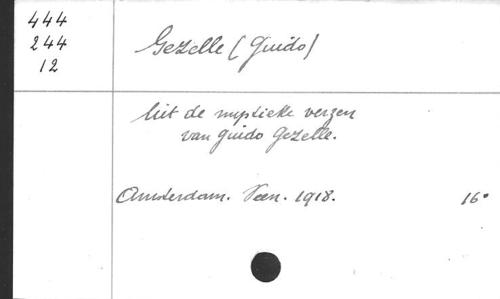 444
244
12
Gezelle (Guido)
Uit de mystieke verzen
van Guido Gezelle.
Amsterdam. Veen. 1918. 16°